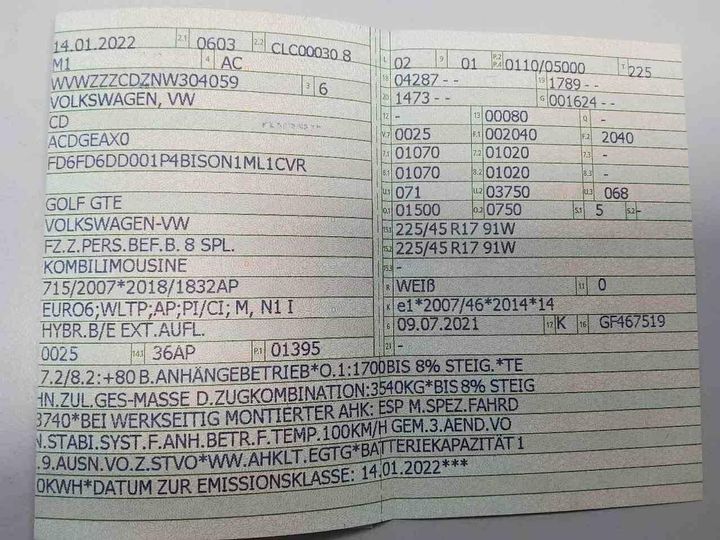 14.01.2022 2.1 0603 2.2 CLC00030 8
M1 4 AC
WVWZZZCDZNW304059 3 6
VOLKSWAGEN, VW
CD
ACDGEAX0
FD6FD6DD001P4BISON1ML1CVR
GOLF GTE
VOLKSWAGEN-VW
FZ.Z.PERS.BEF.B. 8 SPL.
KOMBILIMOUSINE
715/2007*2018/1832AP
EURO6;WLTP;AP;PI/CI; M, N1 I
HYBR.B/E EXT.AUFL.
0025 14.1 36AP P.1 01395
L 02 9 01 P.2 P.4 0110/05000 T 225
18 04287 - - 19 1789 - -
20 1473 - - G 001624 - -
12 - 13 00080 Q -
V.7 0025 F.1 002040 F.2 2040
7.1 01070 7.2 01020 7.3 -
8.1 01070 8.2 01020 8.3 -
U.1 071 U.2 03750 U.3 068
O.1 01500 O.2 0750 S.1 5 S.2 -
15.1 225/45 R17 91W
15.2 225/45 R17 91W
15.3 -
R WEIß 11 0
K e1*2007/46*2014*14
6 09.07.2021 17 K 16 GF467519
21 -
7.2/8.2:+80 B.ANHÄNGEBETRIEB*O.1:1700BIS 8% STEIG.*TE
HN.ZUL.GES-MASSE D.ZUGKOMBINATION:3540KG*BIS 8% STEIG
3740*BEI WERKSEITIG MONTIERTER AHK: ESP M.SPEZ.FAHRD
.STABI.SYST.F.ANH.BETR.F.TEMP.100KM/H GEM.3.AEND.VO
.9.AUSN.VO.Z.STVO*WW.AHKLT.EGTG*BATTERIEKAPAZITÄT 1
0KWH*DATUM ZUR EMISSIONSKLASSE: 14.01.2022***